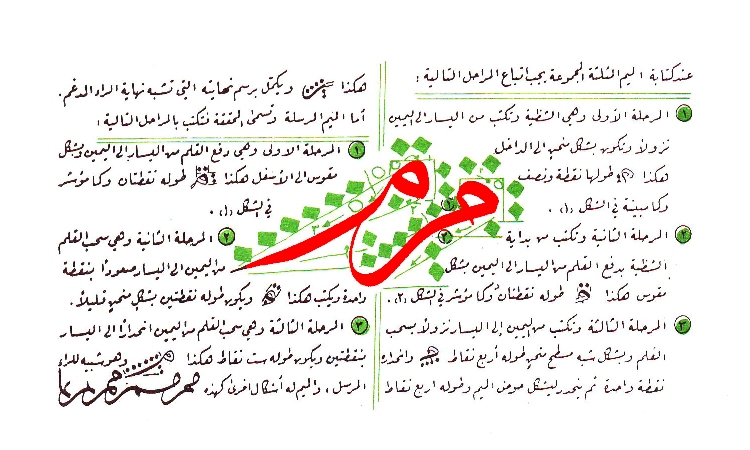 عند كتابة الميم المثلثة المجموعة يجب اتباع المراحل التالية :
١ المرحلة الأولى وهي الشظية وتكتب من اليسار الى اليمين
نزولاً وتكون بشكل منحنٍ الى الداخل
هكذا طولها نقطة ونصف
وكما مبينة في الشكل (١) .
٢ المرحلة الثانية وتكتب من بداية
الشظية بدفع القلم من اليسار الى اليمين بشكل
مقوس هكذا طوله نقطتان وكما مؤشر في الشكل (٢) .
٣ المرحلة الثالثة وتكتب من اليمين إلى اليسار نزولاً بسحب
القلم وبشكل شبه مسطح منحنٍ طوله أربع نقاط وانحداره
نقطة واحدة ثم ينحدر ليشكل حوض الميم وطوله اربع نقاط
هكذا ويكمل برسم نهايته التي تشبه نهاية الراء المدغم .
أما الميم المرسلة وتسمى المحققة فتكتب بالمراحل التالية :
١ المرحلة الأولى وهي دفع القلم من اليسار الى اليمين وبشكل
مقوس الى الأسفل هكذا طوله نقطتان وكما مؤشر
في الشكل (١) .
٢ المرحلة الثانية وهي سحب القلم
من اليمين الى اليسار صعوداً بنقطة
واحدة ويكتب هكذا ويكون طوله نقطتين بشكل منحنٍ قليلاً .
٣ المرحلة الثالثة وهي سحب القلم من اليمين انحداراً الى اليسار
بنقطتين ويكون طوله ست نقاط هكذا وهو شبيه للراء
المرسل ، والميم له أشكال اخرى كهذه